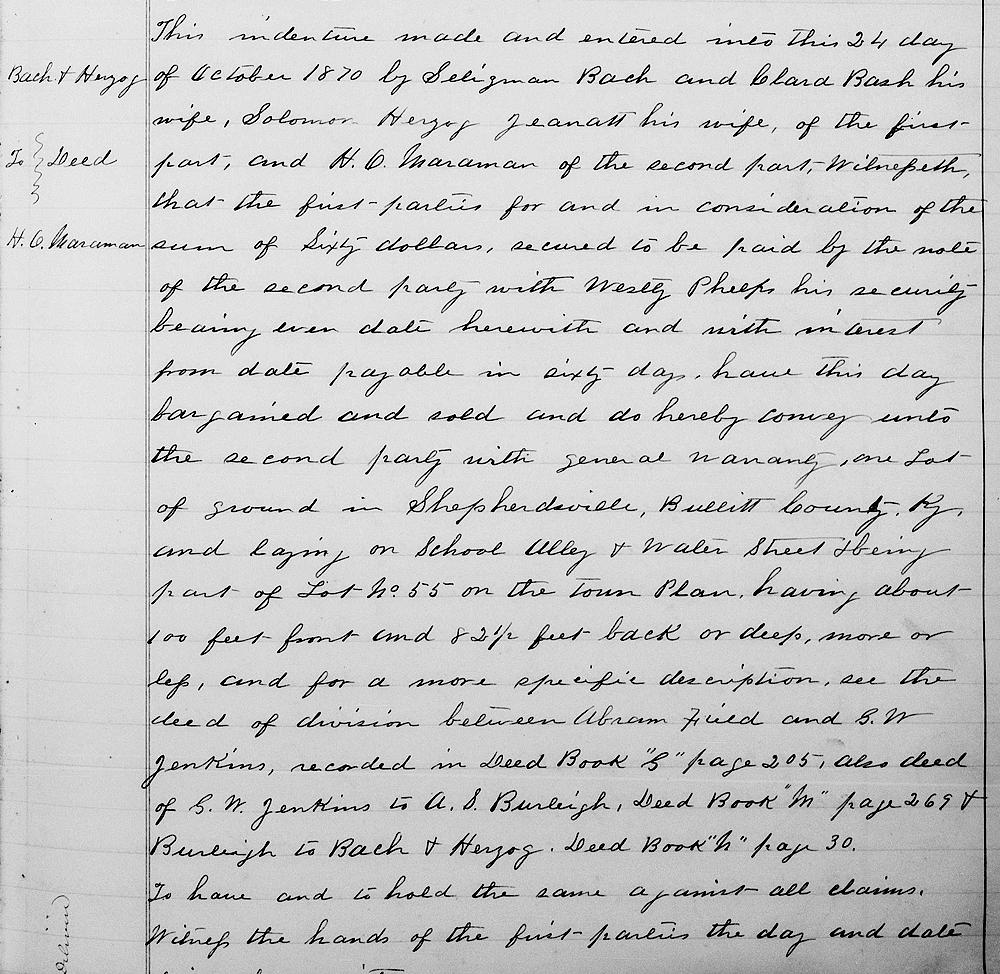 This indenture made and entered into this 24 day
Bach & Herzog
of October 1870 by Seligman Bach and Clara Bash his
wife, Solomon Herzog Jeanatt his wife, of the first
To Deed
part, and H. C. Maraman of the second part, Witnesseth,
that the first parties for and in consideration of the
H. C. Maraman
sum of Sixty dollars, secured to be paid by the note
of the second party with Westly Phelps his security
bearing even date herewith and with interest
from date payable in sixty days, have this day
bargained and sold and do hereby convey unto
the second party with general warranty, one Lot
of ground in Shepherdsville, Bullitt County, Ky,
and laying on School Alley & Water Street & being
part of Lot No 55 on the town Plan, having about
100 feet front and 82 1/2 feet back or deep, more or
less, and for a more specific description, see the
deed of division between Abram Field and G. W
Jenkins, recorded in Deed Book "G" page 205, also deed
of G. W. Jenkins to A. S. Burleigh, Deed Book "M" page 269 &
Burleigh to Bach & Herzog. Deed Book "N" page 30.
To have and to hold the same against all claims.
Witness the hands of the first parties the day and date